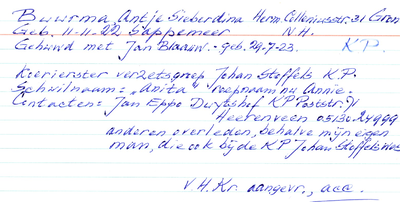 Buurma, Antje Sieberdina Herm. Colleniusstr. 31 Gron
Geb. 11-11-22 Sappemeer N.H.
Gehuwd met Jan Blaauw. - geb. 29-7-23. K.P.
Koerierster verzetsgroep Johan Stoffels K.P.
Schuilnaam: "Anita" roepnaam nu Annie.
Contacten: Jan Eppo Duytshof KP Poststr. 71
Heerenveen 05130-24999
anderen overleden, behalve mijn eigen
man, die ook bij de KP Johan Stoffels was
V.H. Kr. aangevr., acc.